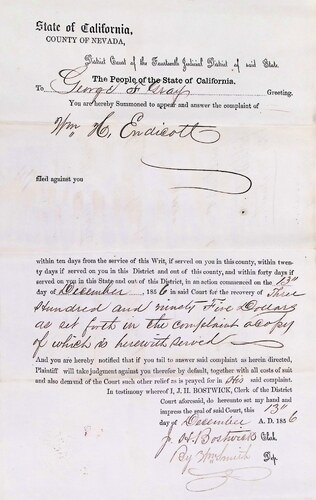 State of California,
COUNTY OF NEVADA,
District Court of the Fourteenth Judicial District of said State.
The People of the State of California.
To George F Gray Greeting.
You are hereby Summoned to appear and answer the complaint of
Wm H, Endicott
filed against you
within ten days from the service of this Writ, if served on you in this county, within
twenty days if served on you in this District and out of this county, and within forty days if
served on you in this State and out of this District, in an action commenced on the 13"
day of December 1856 in said Court for the recovery of Three
Hundred and ninety Five Dollars
as set forth in the complaint a copy
of which is herewith served
And you are hereby notified that if you fail to answer said complaint as herein directed,
Plaintiff will take judgment against you therefor by default, together with all costs of suit
and also demand of the Court such other relief as is prayed for in His said complaint.
In testimony whereof I, J. H. BOSTWICK, Clerk of the District
Court aforesaid, do hereunto set my hand and
impress the seal of said Court, this 13"
day of December A. D. 1856
J. H Bostwick Clerk.
By Wm Smith Dep.